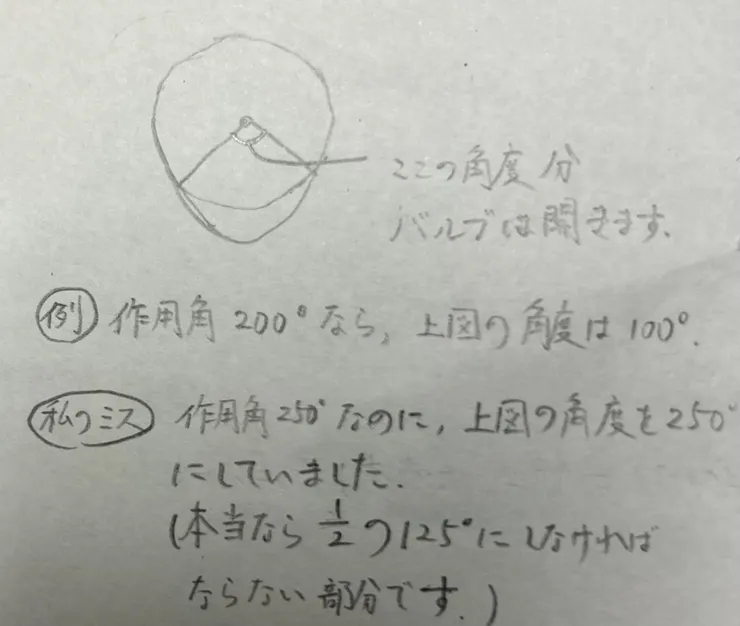 ここの角度分
バルブは開きます.
例 作用角200°なら, 上図の角度は100°.
私のミス 作用角250°なのに, 上図の角度を250°
にしていました.
(本当なら1/2の125°にしなければ
ならない部分です.)